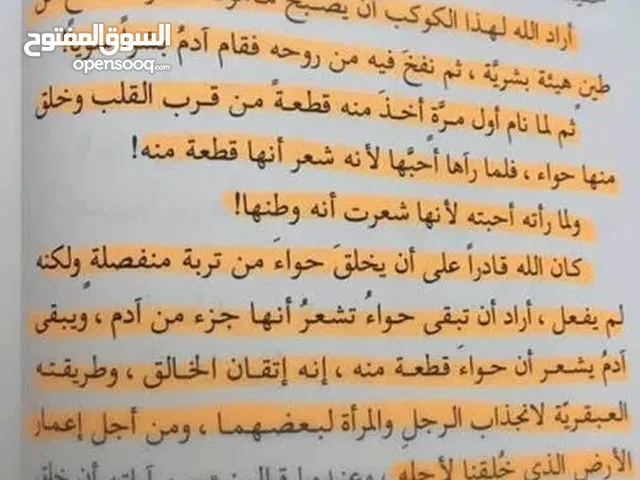 السوق المفتوح
opensooq.com
أراد الله لهذا الكوكب أن يصبح
طين هيئة بشريَّة ، ثم نفخَ فيه من روحه فقام آدمُ
ثم لما نام أول مرَّة أخذَ منه قطعةً من قرب القلب وخلق
منها حواء ، فلما رآها أحبَّها لأنه شعر أنها قطعة منه!
ولما رأته أحبته لأنها شعرت أنه وطنها!
كان الله قادراً على أن يخلقَ حواءَ من تربة منفصلةٍ ولكنه
لم يفعل ، أراد أن تبقى حواءُ تشعرُ أنها جزء من آدم ، ويبقى
آدمُ يشعر أن حواءَ قطعة منه ، إنه إتقان الخالق ، وطريقته
العبقريّة لانجذاب الرجلِ والمرأة لبعضهما ، ومن أجل إعمار
الأرض الذي خُلقنا لأجله